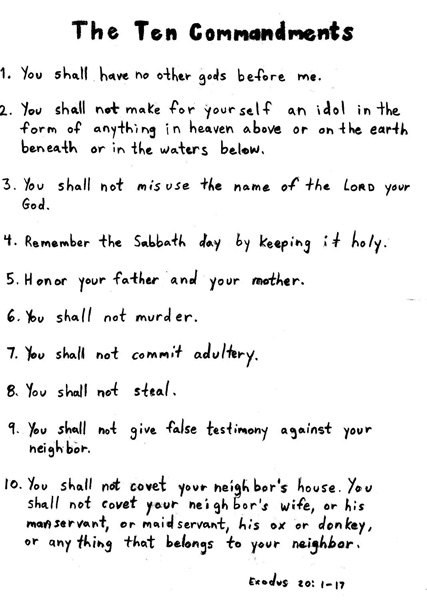 The Ten Commandments
1. You shall have no other gods before me.
2. You shall not make for yourself an idol in the
form of anything in heaven above or on the earth
beneath or in the waters below.
3. You shall not misuse the name of the LORD your
God.
4. Remember the Sabbath day by keeping it holy.
5. Honor your father and your mother.
6. You shall not murder.
7. You shall not commit adultery.
8. You shall not steal.
9. You shall not give false testimony against your
neighbor.
10. You shall not covet your neighbor's house. You
shall not covet your neighbor's wife, or his
manservant, or maidservant, his ox or donkey,
or anything that belongs to your neighbor.
Exodus 20: 1-17